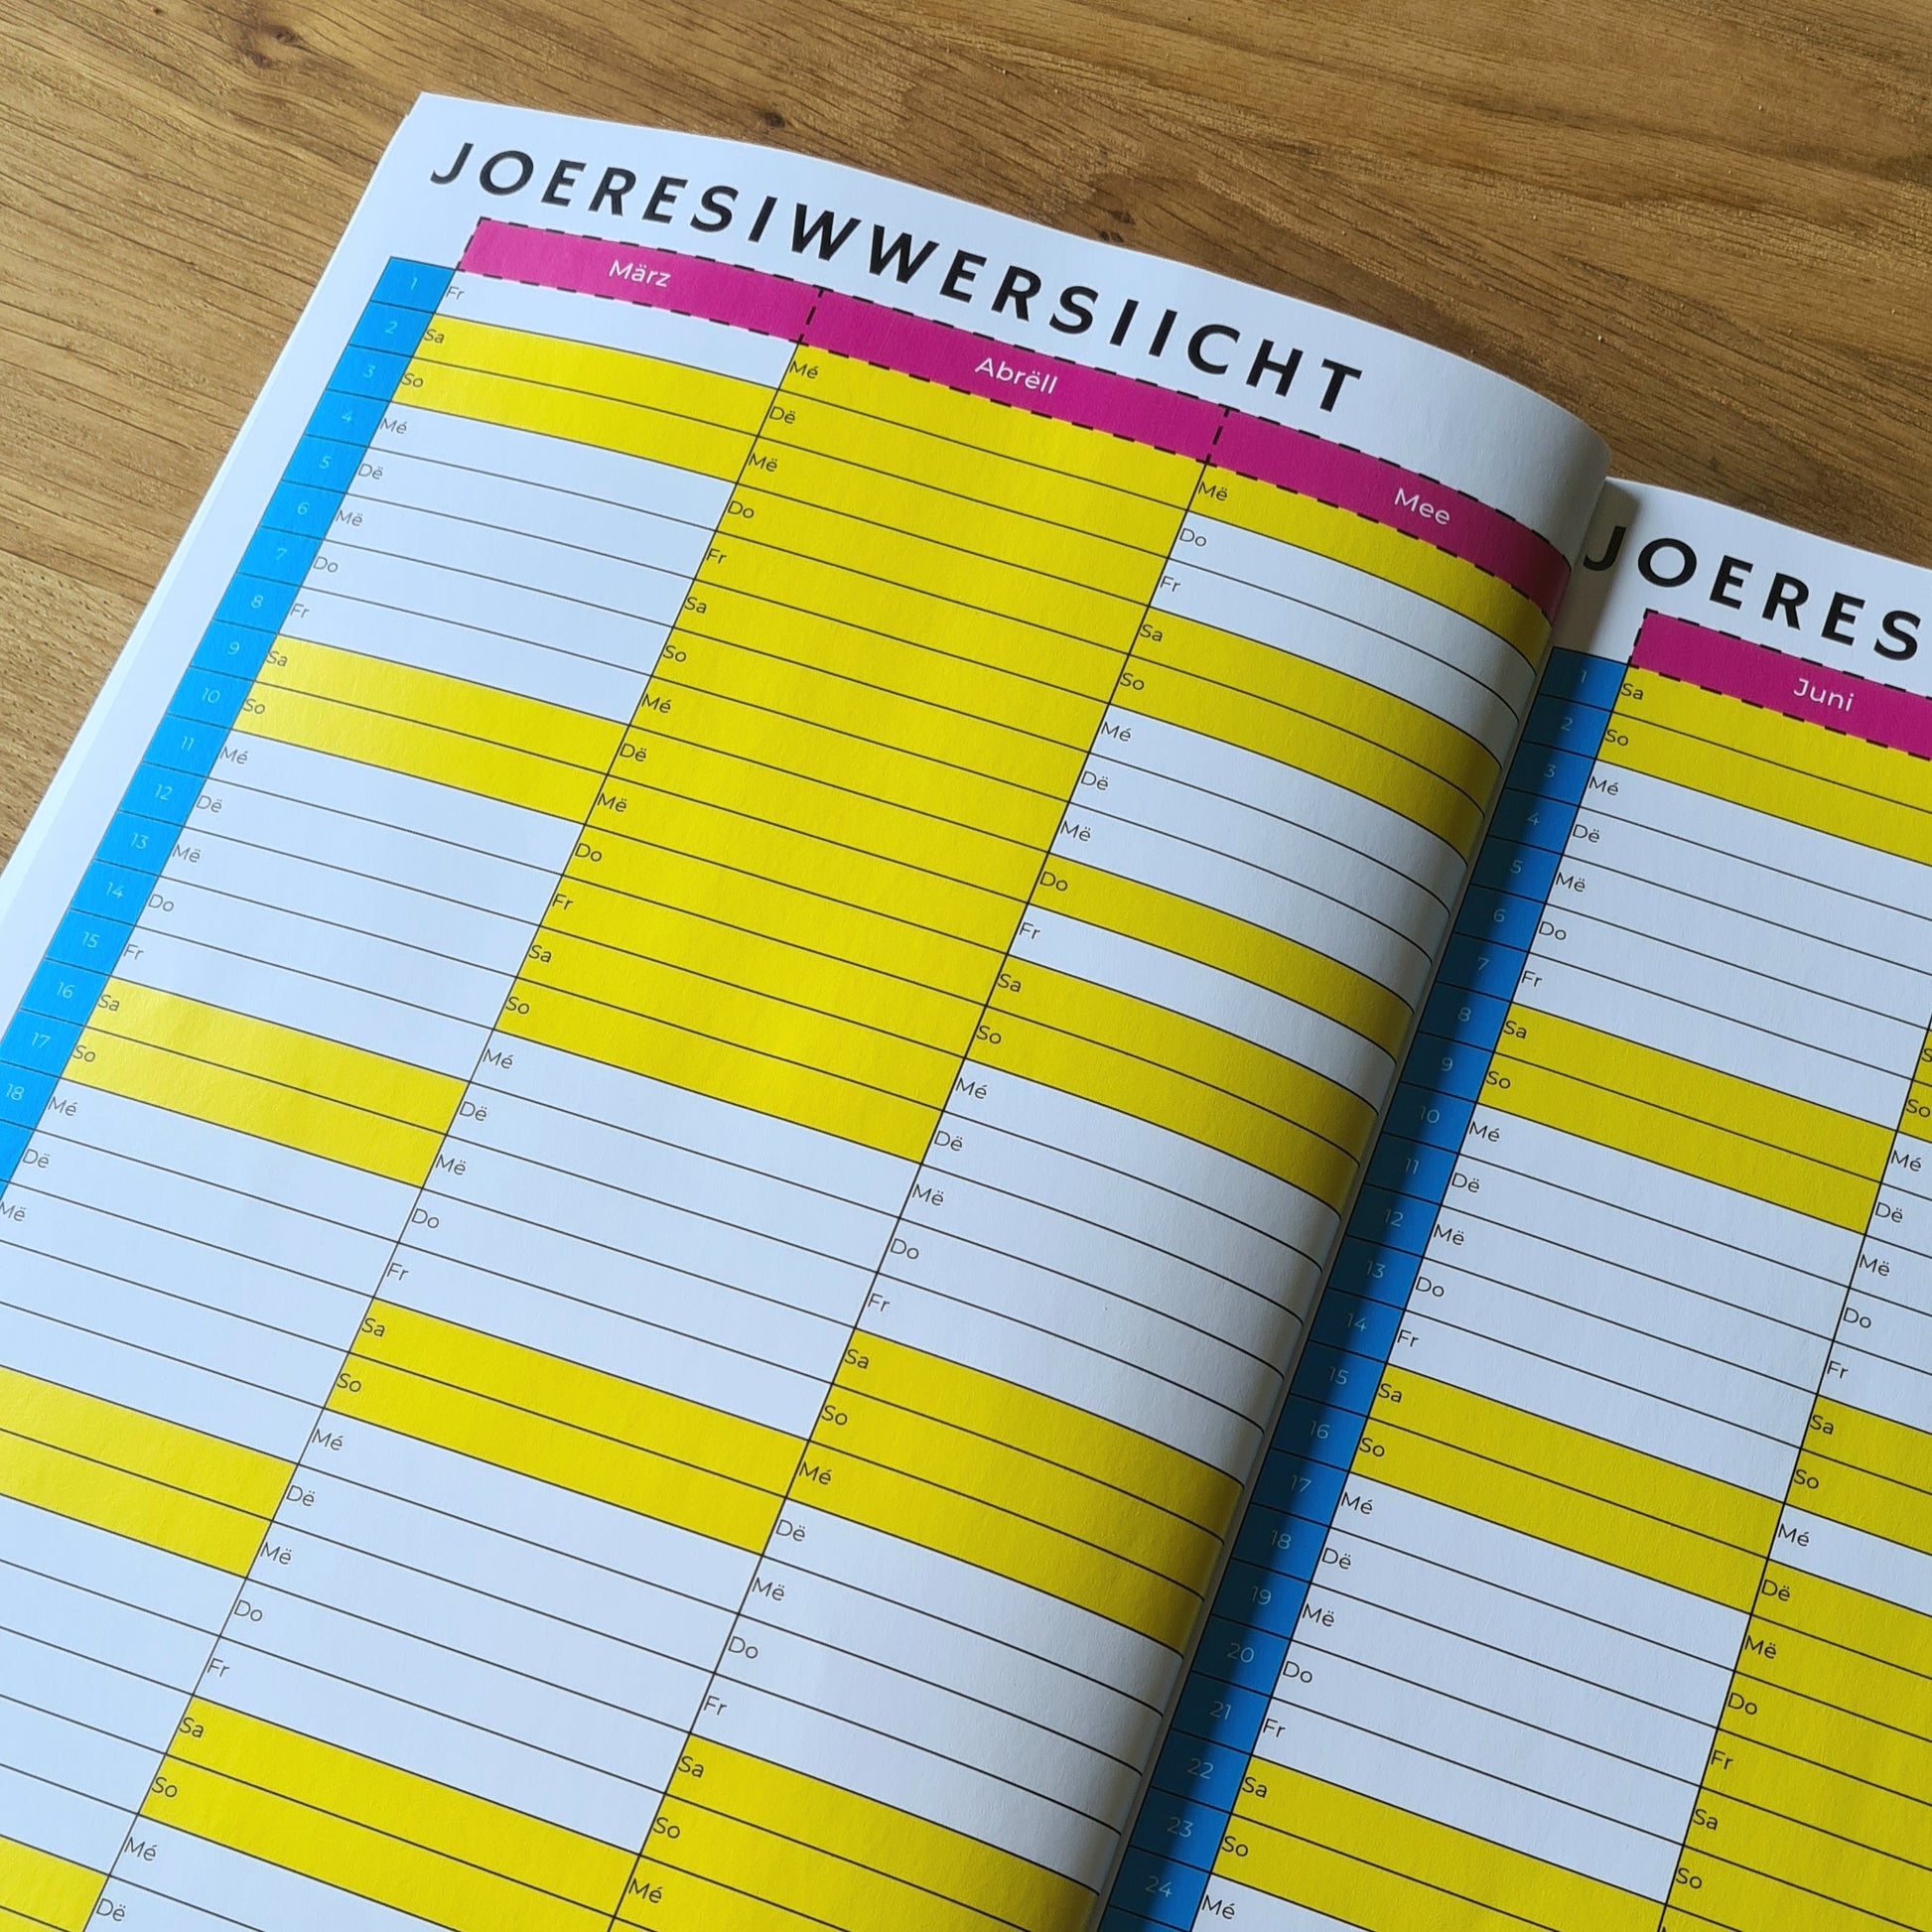 JOERESIWWERSIICHT
März Abrëll Mee
1 Fr Mé Më
2 Sa Dë Do
3 So Më Fr
4 Mé Do Sa
5 Dë Fr So
6 Më Sa Mé
7 Do So Dë
8 Fr Mé Më
9 Sa Dë Do
10 So Më Fr
11 Mé Do Sa
12 Dë Fr So
13 Më Sa Mé
14 Do So Dë
15 Fr Mé Më
16 Sa Dë Do
17 So Më Fr
18 Mé Do Sa
Dë Fr So
Më Sa Mé
So Dë
Mé Më
Dë Do
Më Fr
Do Sa
Fr So
Sa Mé
So
Mé
Dë
JOERES
Juni
1 Sa
2 So
3 Mé
4 Dë
5 Më
6 Do
7 Fr So
8 Sa Mé
9 So Dë
10 Mé Më
11 Dë Do
12 Më Fr
13 Do Sa
14 Fr So
15 Sa Mé
16 So Dë
17 Mé Më
18 Dë Do
19 Më Fr
20 Do Sa
21 Fr So
22 Sa
23 So
24 Mé